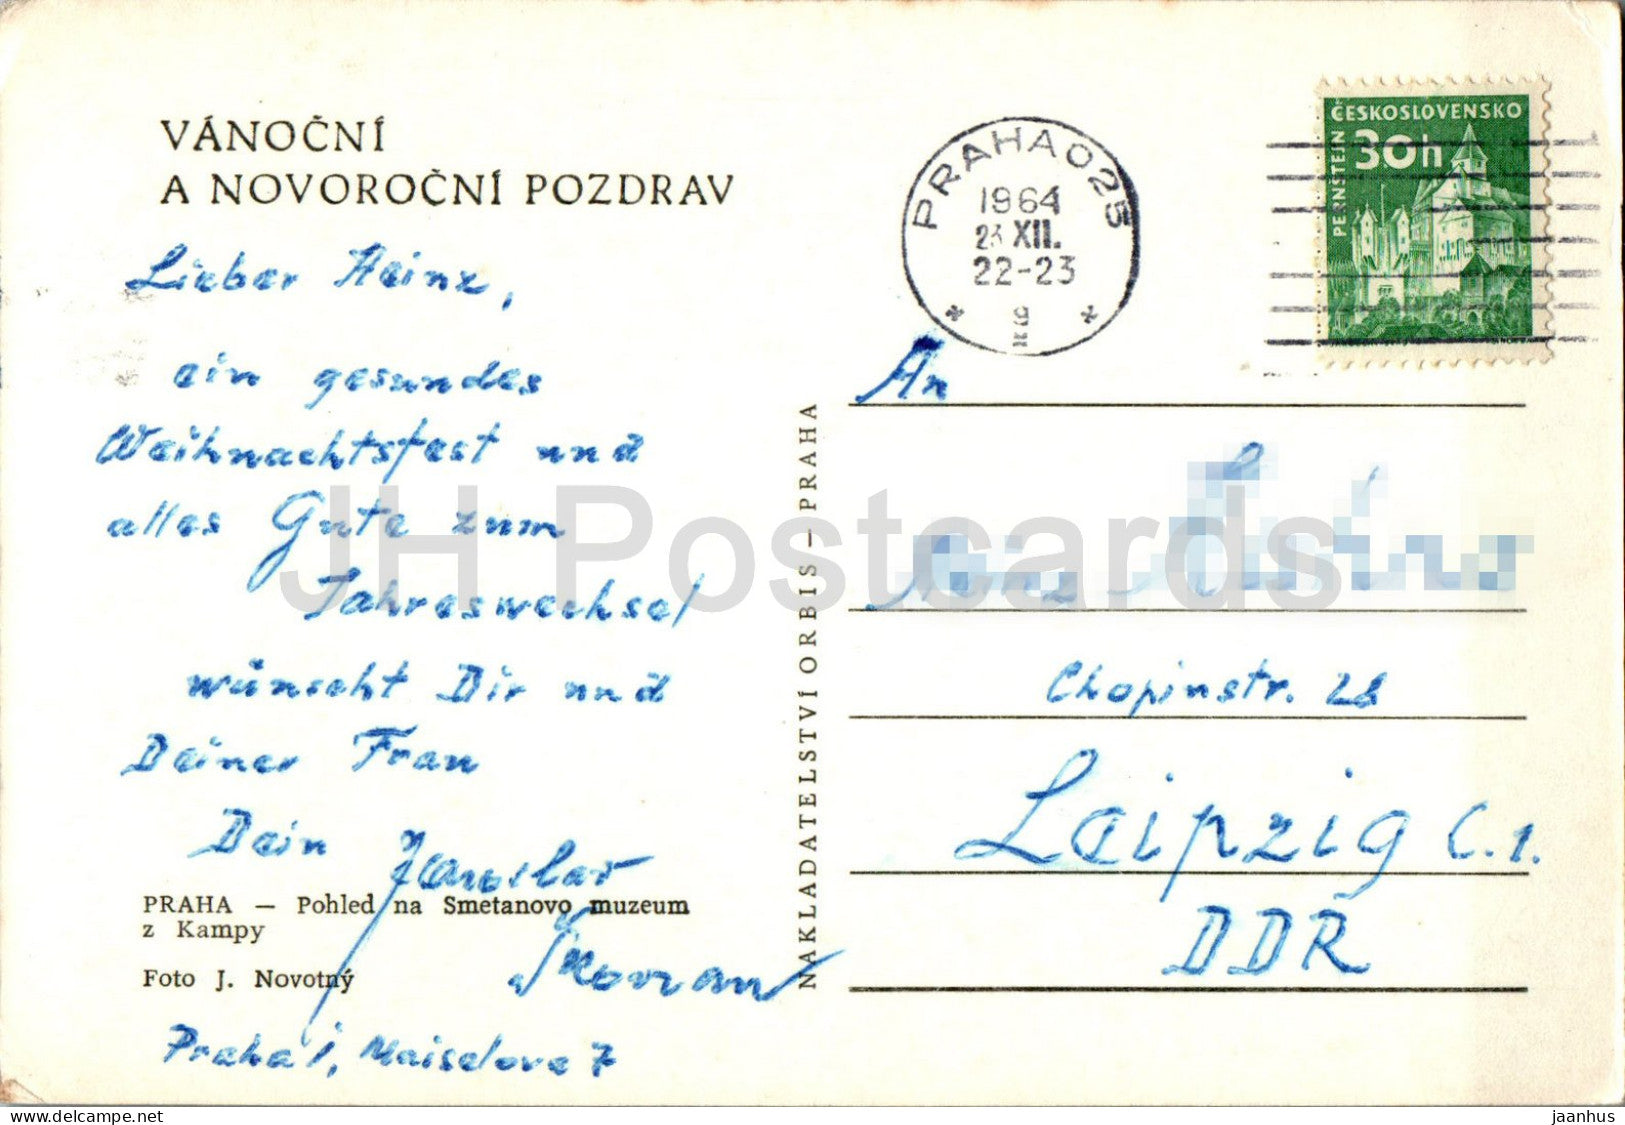 VÁNOČNÍ
A NOVOROČNÍ POZDRAV
Lieber Heinz,
ein gesundes
Weihnachtsfest und
alles Gute zum
Jahreswechsel
wünscht Dir und
Deiner Frau
Dein Jaroslav
PRAHA — Pohled na Smetanovo muzeum
z Kampy
Foto J. Novotný
Praha 1, Maiselova 7
NAKLADATELSTVÍ ORBIS — PRAHA
PRAHA 025
1964
XII.
22-23
ČESKOSLOVENSKO
30h
PERNŠTEJN
An
Chopinstr. 28
Leipzig C.1.
DDR
JH Postcards
delcampe.net
jaanhus